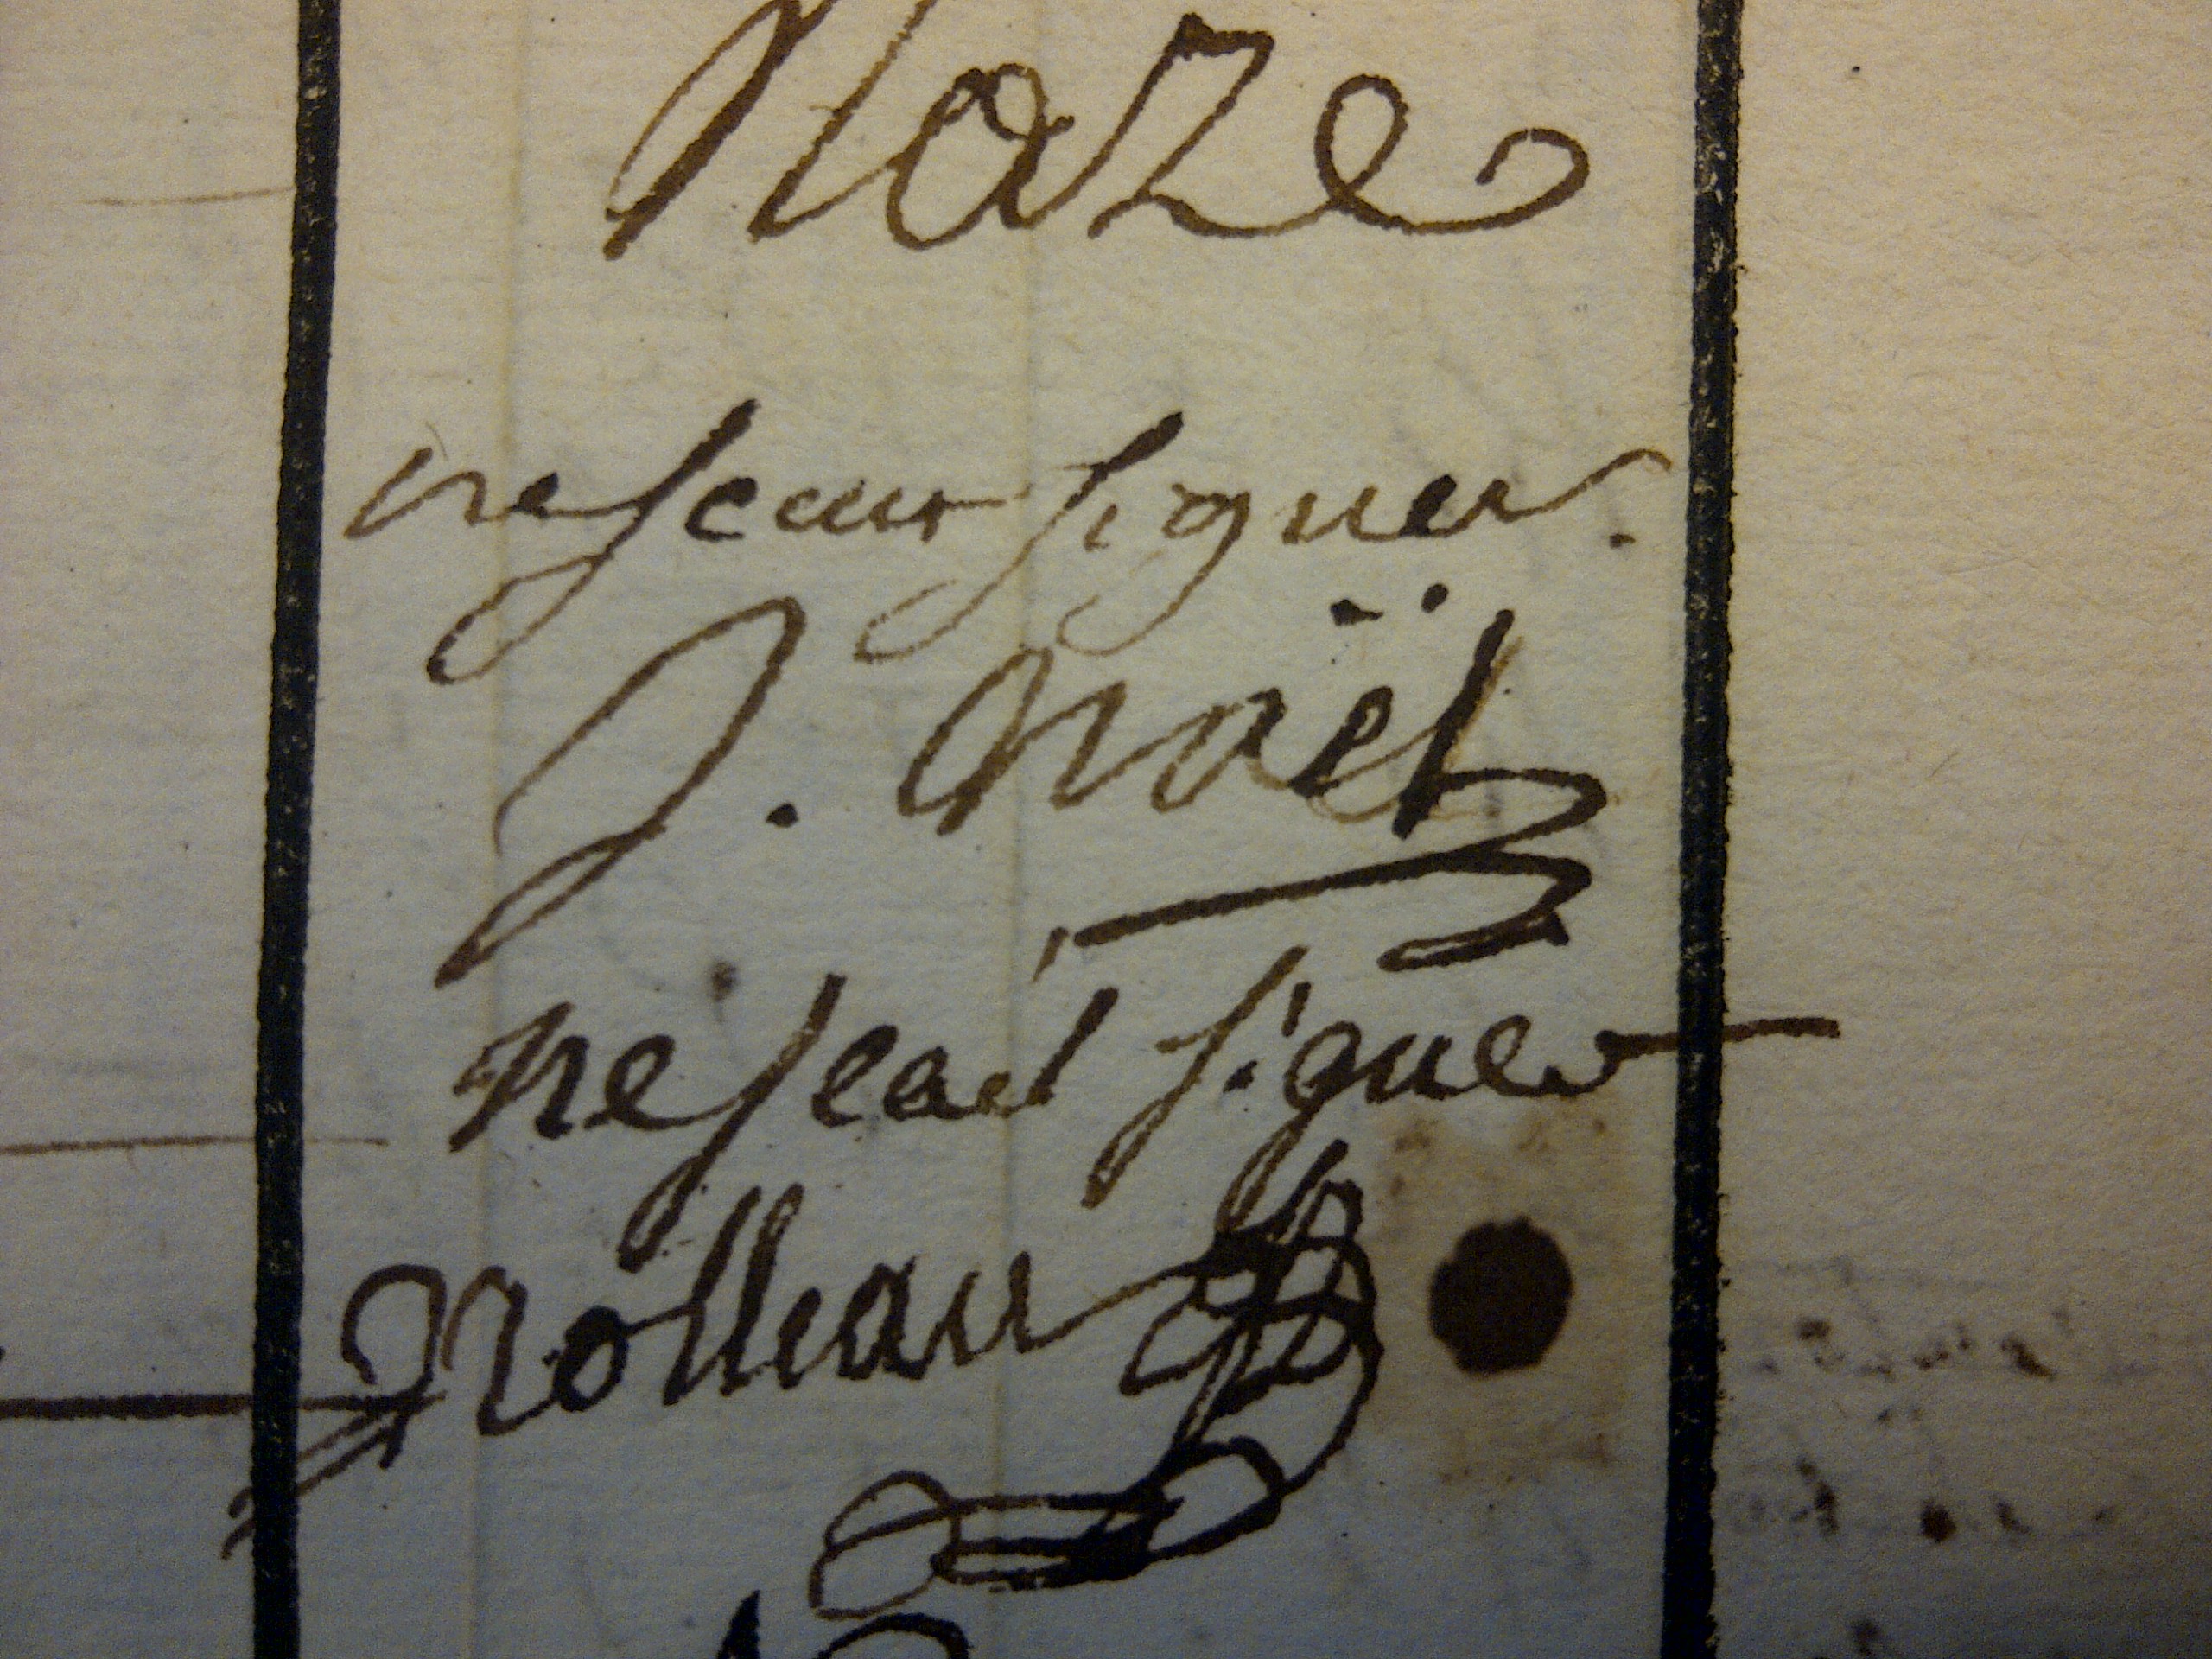 Naze
ne scaur signer.
J. Noël
ne scait signer
Nolleau